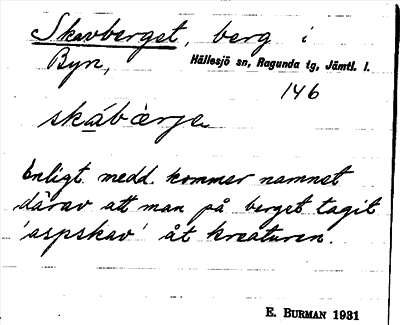 Skavberget, berg i
Byn, Hällesjö sn, Ragunda tg, Jämtl. l.
146
skábærje
Enligt medd. kommer namnet
därav att man på berget tagit
'aspskav' åt kreaturen.
E. BURMAN 1931